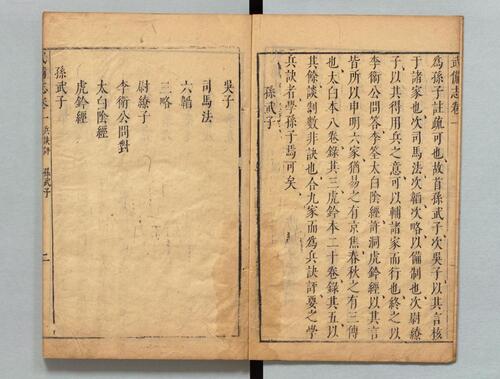 武備志卷一
爲孫子註疏可也故首孫武子次吳子以其言核
于諸家也次司馬法次韜次略以備制也次尉繚
子以其得用兵之意可以輔諸家而行也終之以
李衛公問答李筌太白陰經許洞虎鈐經以其言
皆所以申明六家猶易之有京焦春秋之有三傳
也太白本八卷錄其三虎鈐本二十卷錄其五以
其餘談剩數非訣也合九家而爲兵訣評要之學
兵訣者學孫子焉可矣
孫武子
吳子
司馬法
六韜
三略
尉繚子
李衛公問對
太白陰經
虎鈐經
孫武子
備志卷一 兵訣評 孫武子 二